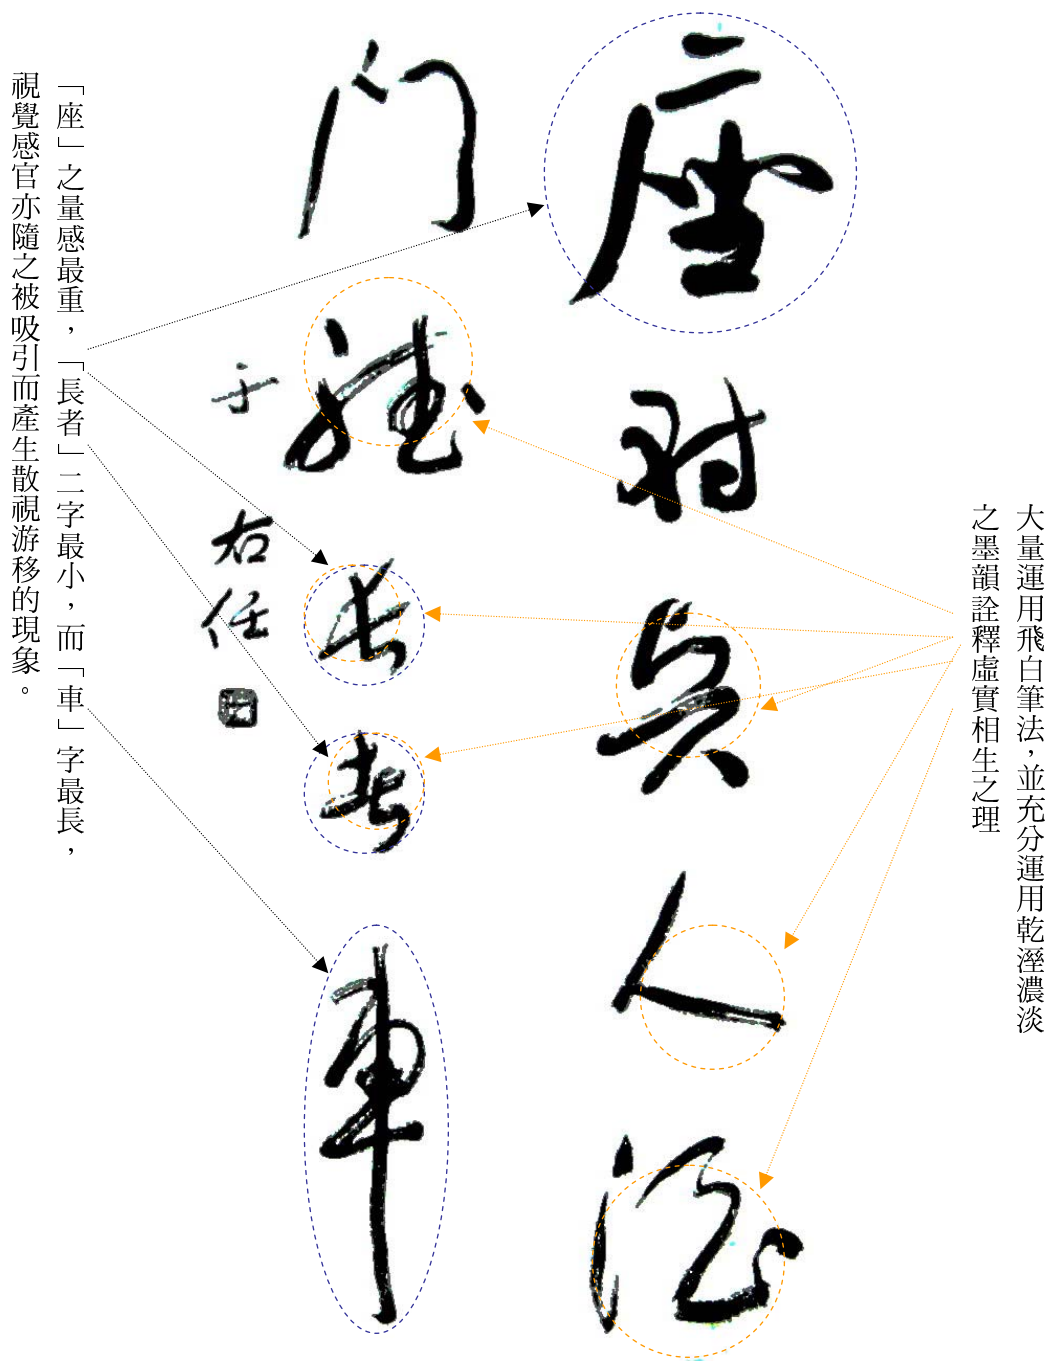 大量運用飛白筆法，並充分運用乾溼濃淡
之墨韻詮釋虛實相生之理
座對賢人酒
門聽長者車
于右任
「座」之量感最重，「長者」二字最小，而「車」字最長，
視覺感官亦隨之被吸引而產生散視游移的現象。